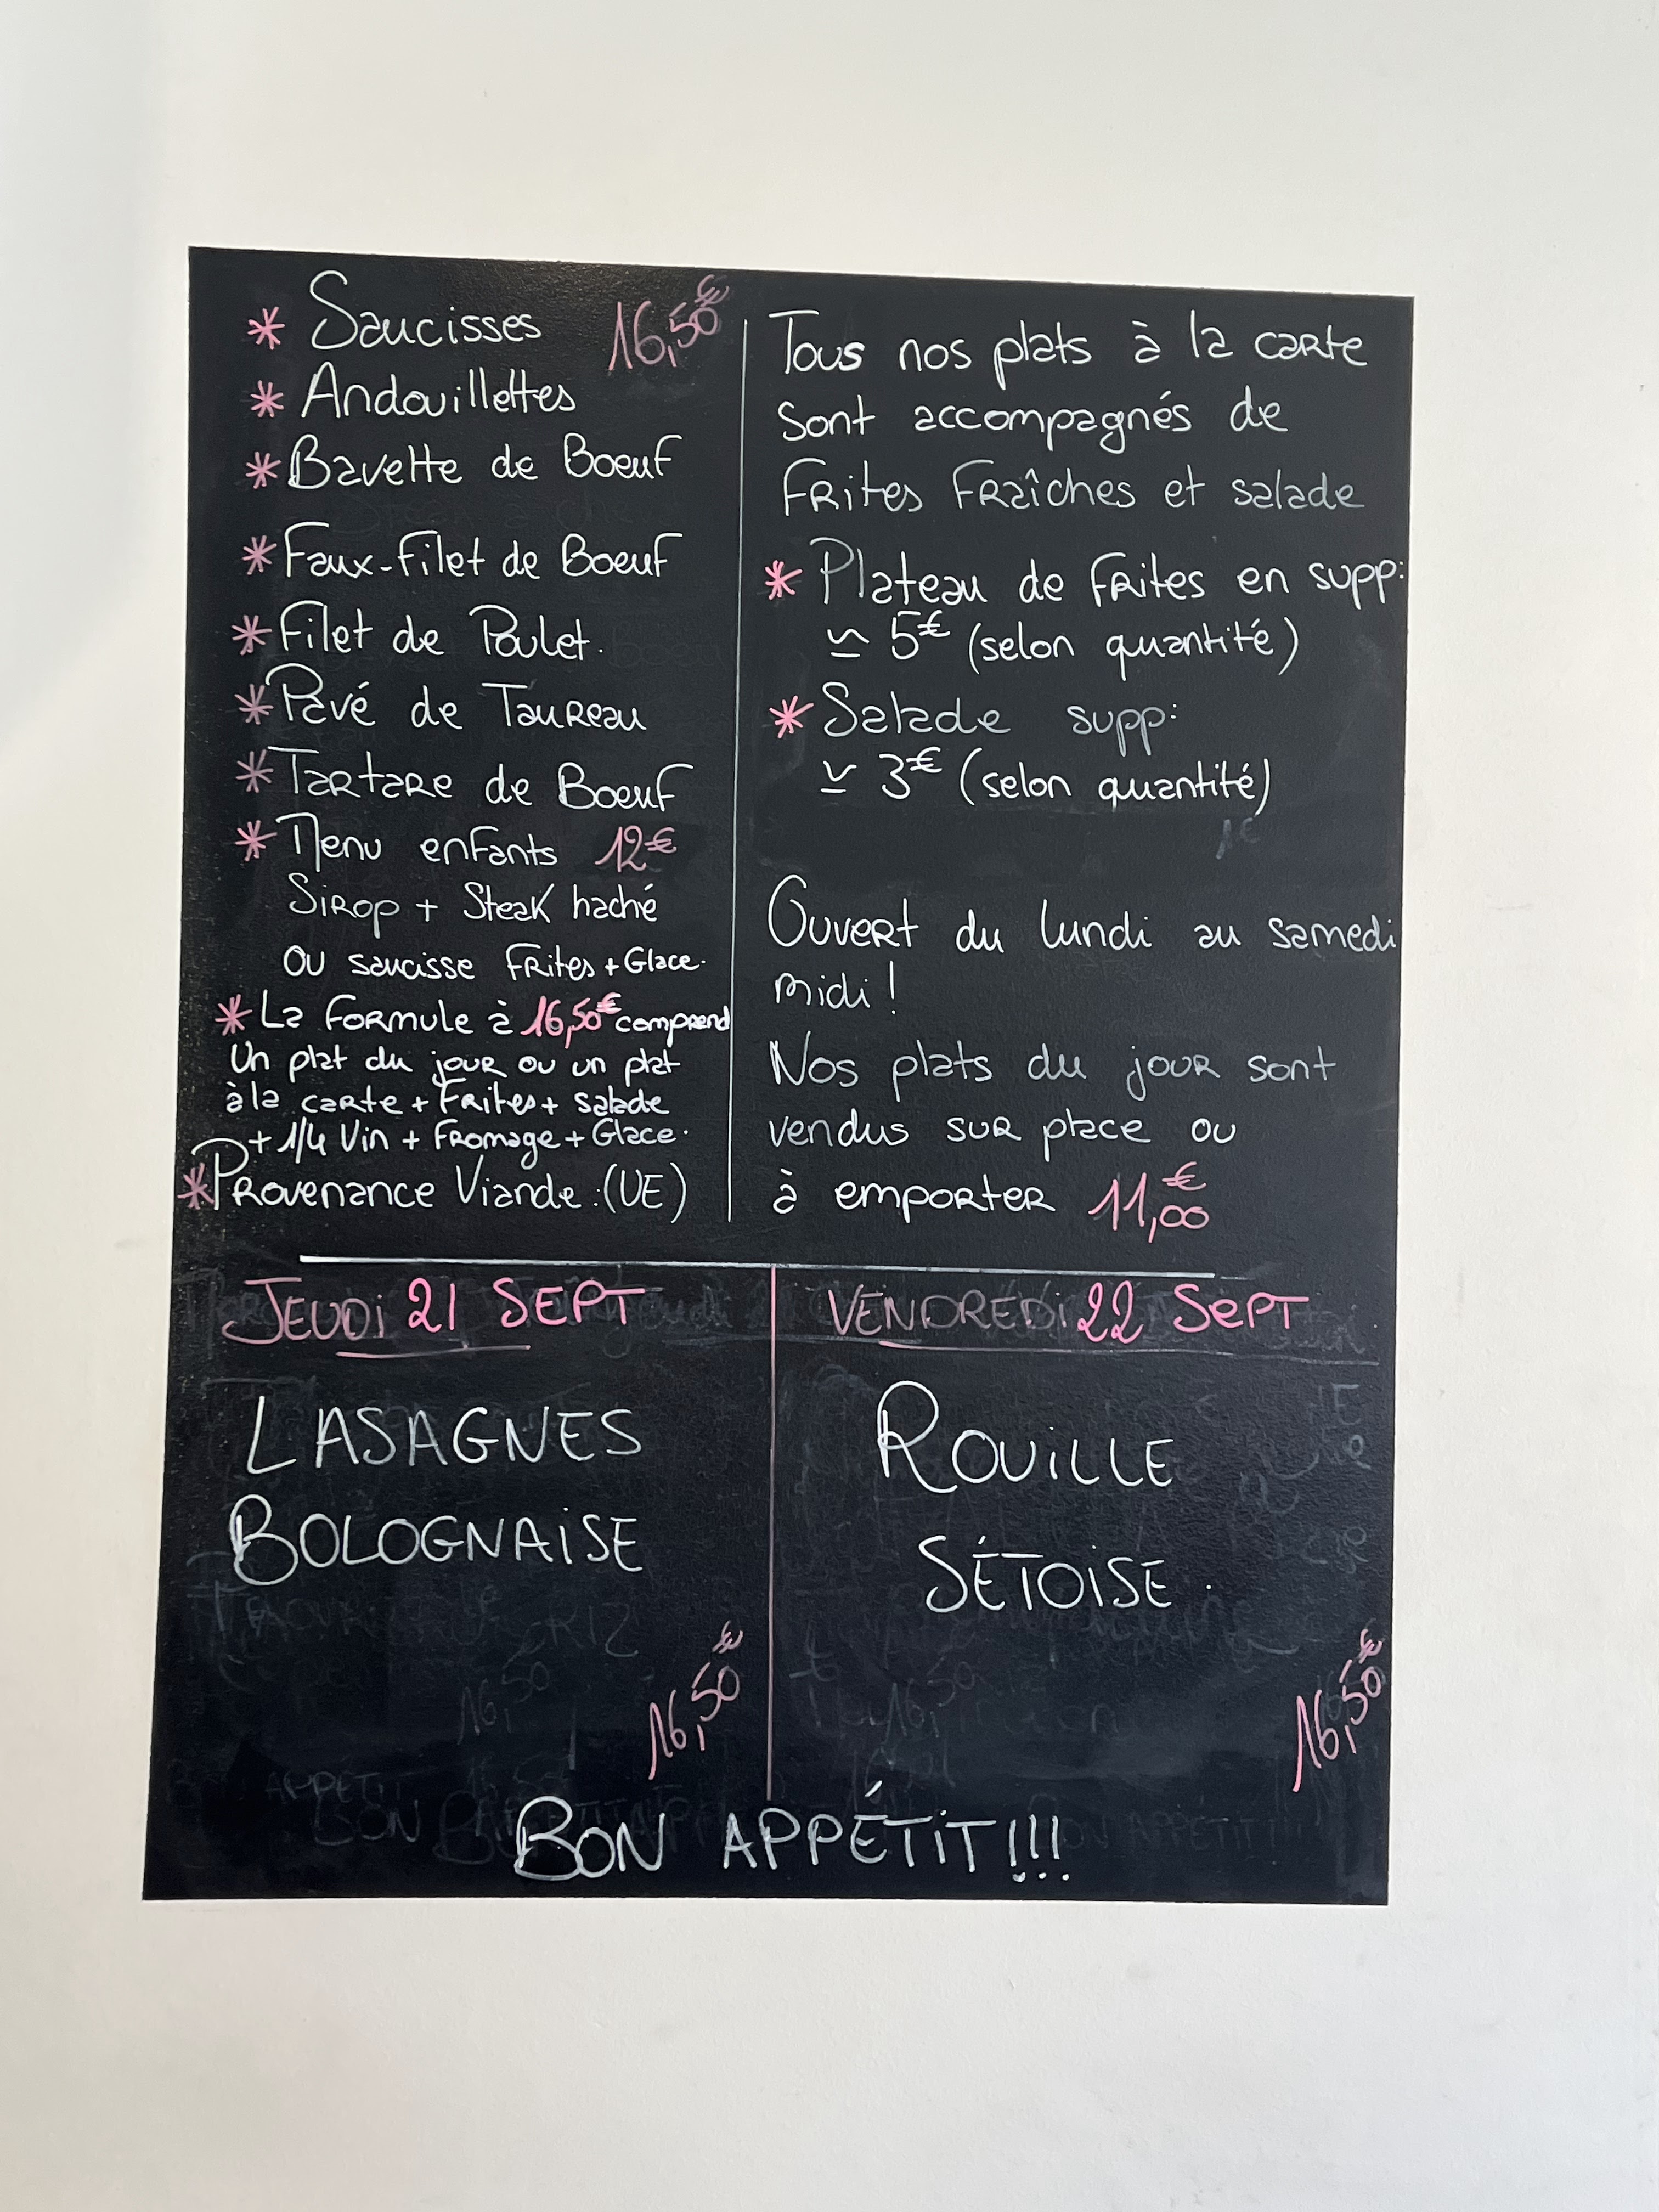 * Saucisses 16,50€
* Andouillettes
* Bavette de Boeuf
* Faux-Filet de Boeuf
* Filet de Poulet.
* Pavé de Taureau
* Tartare de Boeuf
* Menu enfants 12€
Sirop + Steak haché
ou saucisse Frites + Glace.
* La Formule à 16,50€ comprend
Un plat du jour ou un plat
à la carte + Frites + salade
+ 1/4 Vin + Fromage + Glace.
* Provenance Viande : (UE)
Tous nos plats à la carte
sont accompagnés de
Frites Fraîches et salade
* Plateau de Frites en supp:
≃ 5€ (selon quantité)
* Salade supp:
≃ 3€ (selon quantité)
1€
Ouvert du lundi au samedi
midi !
Nos plats du jour sont
vendus sur place ou
à emporter 11,00€
JEUDi 21 SEPT
LASAGNES
BOLOGNAiSE
16,50€
VENDREDi 22 SEPT
ROUiLLE
SÉTOiSE.
16,50€
BON APPÉTiT!!!